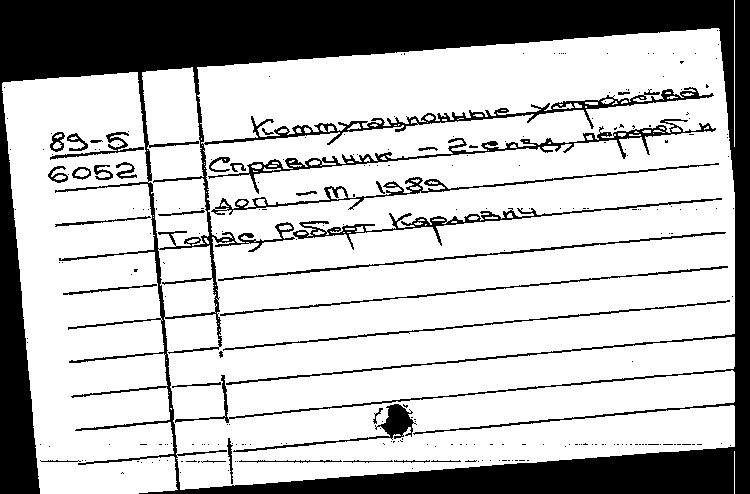 89-5
6052
Коммутационные устройства:
Справочник. - 2-е изд., перераб. и
доп. - М., 1989
Томас, Роберт Карлович